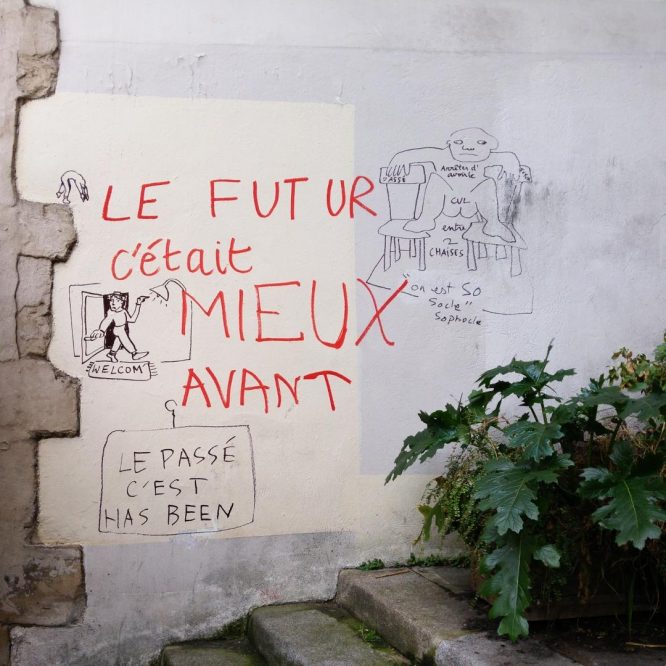 LE FUTUR
c'était
MIEUX
AVANT
WELCOM
LE PASSÉ
C'EST
HAS BEEN
Arrêtes d'
avoir le
CUL
entre
2
CHAISES
"on est SO
Socle"
Sophocle